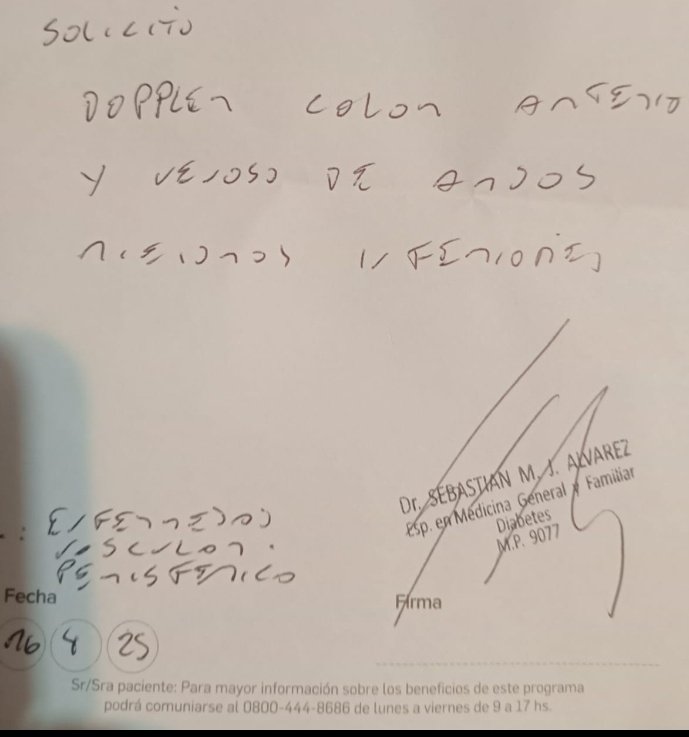 SOLICITO
DOPPLER COLOR ARTERIO
Y VENOSO DE AMBOS
MIEMBROS INFERIORES
Dr. SEBASTIAN M. J. ALVAREZ
Esp. en Medicina General y Familiar
Diabetes
M.P. 9077
: ENFERMEDAD
VASCULAR
PERISFERICO
Fecha
Firma
16 4 25
Sr/Sra paciente: Para mayor información sobre los beneficios de este programa
podrá comuniarse al 0800-444-8686 de lunes a viernes de 9 a 17 hs.